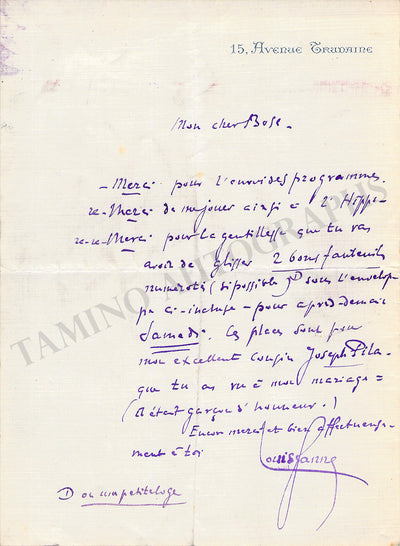 15, Avenue Trudaine
Mon cher Bose -
- Merci pour l'envoi des programmes.
re-Merci de me jouer ainsi à l'Hippo-
re-re-Merci pour la gentillesse que tu vas
avoir de glisser 2 bons fauteuils
numérotés (si possible) D sous l'envelop-
pe ci-incluse - pour après-demain
Samedi. Ces places sont pour
mon excellent cousin Joseph Pila-
que tu as vu à mon mariage =
(Il était garçon d'honneur!)
Encor merci et bien affectueuse-
ment à toi
Louis Ganne
D ou un petite loge
TAMINO AUTOGRAPHS